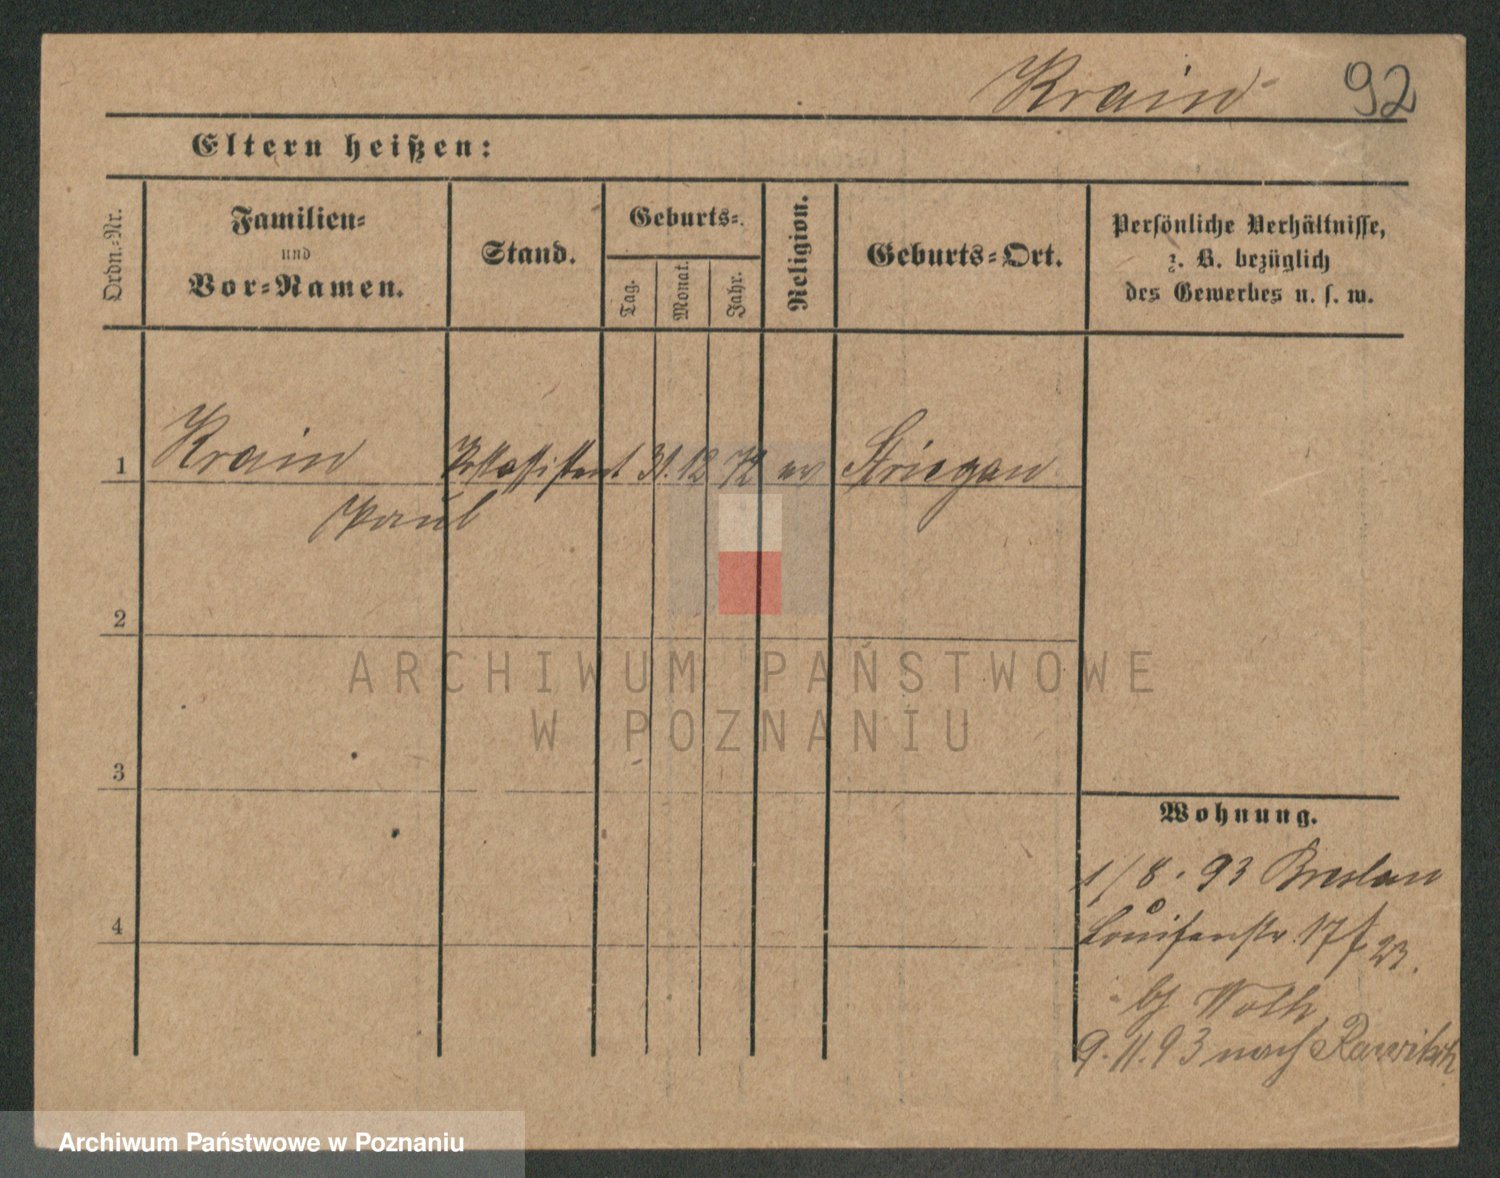 Krain 92
Eltern heißen:
Ordn.-Nr.
Familien-
und
Vor-Namen.
Stand.
Geburts-
Tag.
Monat.
Jahr.
Religion.
Geburts-Ort.
Persönliche Verhältnisse,
z. B. bezüglich
des Gewerbes u. s. w.
1 Krain 31. 12 72 ev Striegau
Paul
2
3
4
ARCHIWUM PAŃSTWOWE
W POZNANIU
Wohnung.
1/8. 93 Breslau
Louisenstr. 17
9. 11. 93 nach Rawitsch
Archiwum Państwowe w Poznaniu